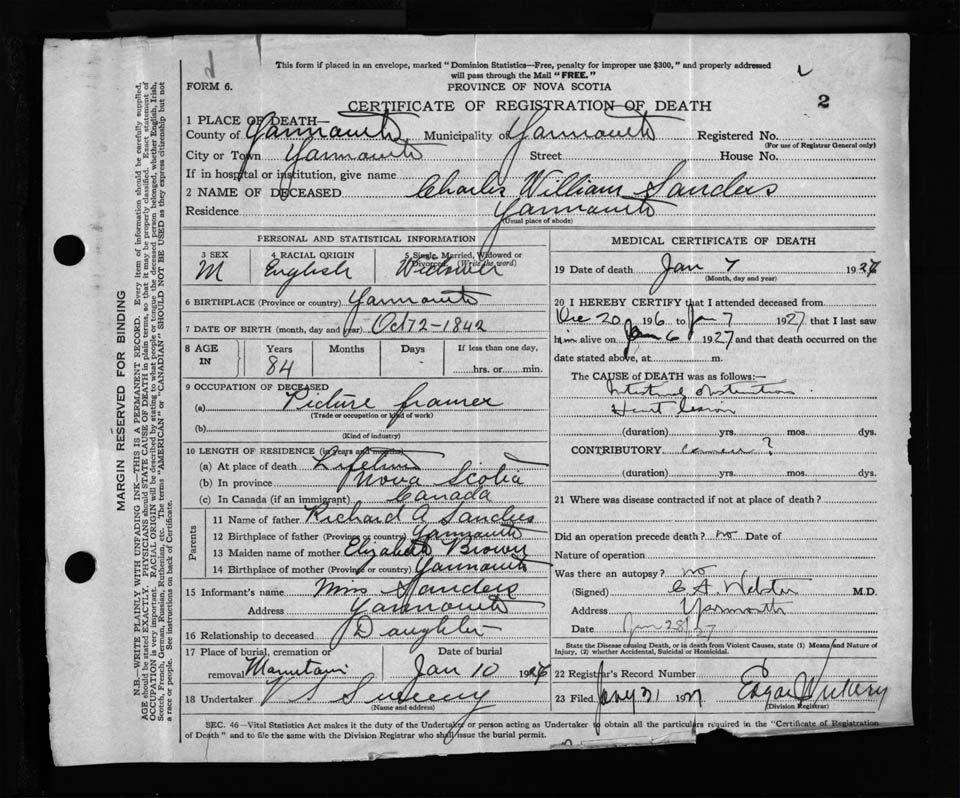 This form if placed in an envelope, marked "Dominion Statistics—Free, penalty for improper use $300," and properly addressed
will pass through the Mail "FREE."
FORM 6.
PROVINCE OF NOVA SCOTIA
2
CERTIFICATE OF REGISTRATION OF DEATH
1 PLACE OF DEATH—
County of Yarmouth Municipality of Yarmouth Registered No.
(For use of Registrar General only)
City or Town Yarmouth Street House No.
If in hospital or institution, give name
2 NAME OF DECEASED Charles William Sanders
Residence Yarmouth
(Usual place of abode)
PERSONAL AND STATISTICAL INFORMATION
3 SEX 4 RACIAL ORIGIN 5 Single, Married, Widowed or Divorced (Write the word)
M English Widower
6 BIRTHPLACE (Province or country) Yarmouth
7 DATE OF BIRTH (month, day and year) Oct 1842
8 AGE IN Years Months Days If less than one day,
84 - hrs. or min.
9 OCCUPATION OF DECEASED
(a) Picture framer
(Trade or occupation or kind of work)
(b)
(Kind of industry)
10 LENGTH OF RESIDENCE (in years and months)
(a) At place of death Lifetime
(b) In province Nova Scotia
(c) In Canada (if an immigrant) Canada
Parents
11 Name of father Richard A Sanders
12 Birthplace of father (Province or country) Yarmouth
13 Maiden name of mother Elizabeth Brown
14 Birthplace of mother (Province or country) Yarmouth
15 Informant's name Miss Sanders
Address Yarmouth
16 Relationship to deceased Daughter
17 Place of burial, cremation or removal Date of burial
Mountain Jan 10 192
18 Undertaker V S Sweeny
(Name and address)
MEDICAL CERTIFICATE OF DEATH
19 Date of death Jan 7 192
(Month, day and year)
20 I HEREBY CERTIFY that I attended deceased from
Dec 20 1926 to Jan 7 1927 that I last saw
him alive on Jan 6 1927 and that death occurred on the
date stated above, at m.
The CAUSE of DEATH was as follows:—
Intestinal obstruction
Heart lesion
(duration) yrs. mos. dys.
CONTRIBUTORY Cancer ?
(duration) yrs. mos. dys.
21 Where was disease contracted if not at place of death?
Did an operation precede death? no Date of
Nature of operation
Was there an autopsy? no
(Signed) C A Webster M.D.
Address Yarmouth
Date Jan 28/27
State the Disease causing Death, or in death from Violent Causes, state (1) Means and Nature of
Injury, (2) whether Accidental, Suicidal or Homicidal.
22 Registrar's Record Number
23 Filed Jany 31 1927 Edgar J Vickery
(Division Registrar)
SEC. 46—Vital Statistics Act makes it the duty of the Undertaker or person acting as Undertaker to obtain all the particulars required in the "Certificate of Registration
of Death" and to file the same with the Division Registrar who shall issue the burial permit.
MARGIN RESERVED FOR BINDING
N.B.—WRITE PLAINLY WITH UNFADING INK—THIS IS A PERMANENT RECORD. Every item of information should be carefully supplied.
AGE should be stated EXACTLY. PHYSICIANS should STATE CAUSE OF DEATH in plain terms, so that it may be properly classified. Exact statement of
OCCUPATION is very important. RACIAL ORIGIN will be described by stating to what people or tongue the deceased person belonged, whether English, Irish,
Scotch, French, German, Russian, Ruthenian, etc. The terms "AMERICAN" or "CANADIAN" SHOULD NOT BE USED as they express citizenship but not
a race or people. See instructions on back of Certificate.